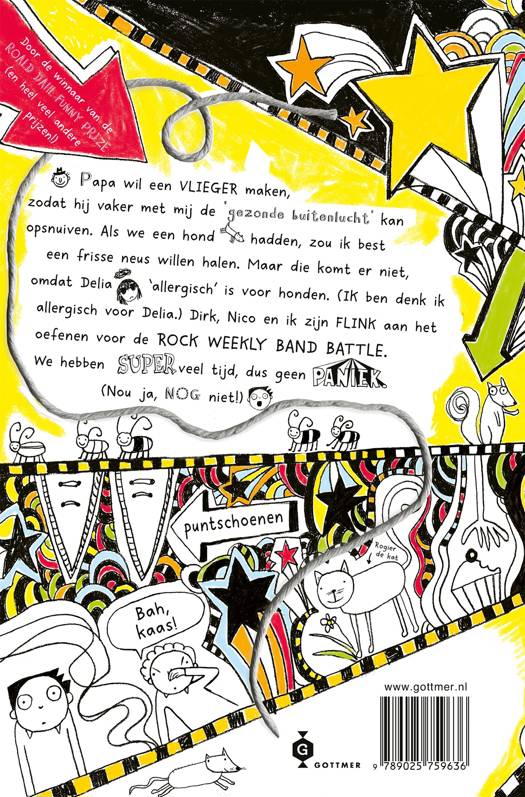 Door de winnaar van de
ROALD DAHL FUNNY PRIZE
(en heel veel andere
prijzen!)
Papa wil een VLIEGER maken,
zodat hij vaker met mij de 'gezonde buitenlucht' kan
opsnuiven. Als we een hond hadden, zou ik best
een frisse neus willen halen. Maar die komt er niet,
omdat Delia 'allergisch' is voor honden. (IK ben denk ik
allergisch voor Delia.) Dirk, Nico en ik zijn FLINK aan het
oefenen voor de ROCK WEEKLY BAND BATTLE.
We hebben SUPERveel tijd, dus geen PANIEK.
(Nou ja, NOG niet!)
puntschoenen
Rogier
de kat
Bah,
kaas!
www.gottmer.nl
G
GOTTMER
9 789025 759636